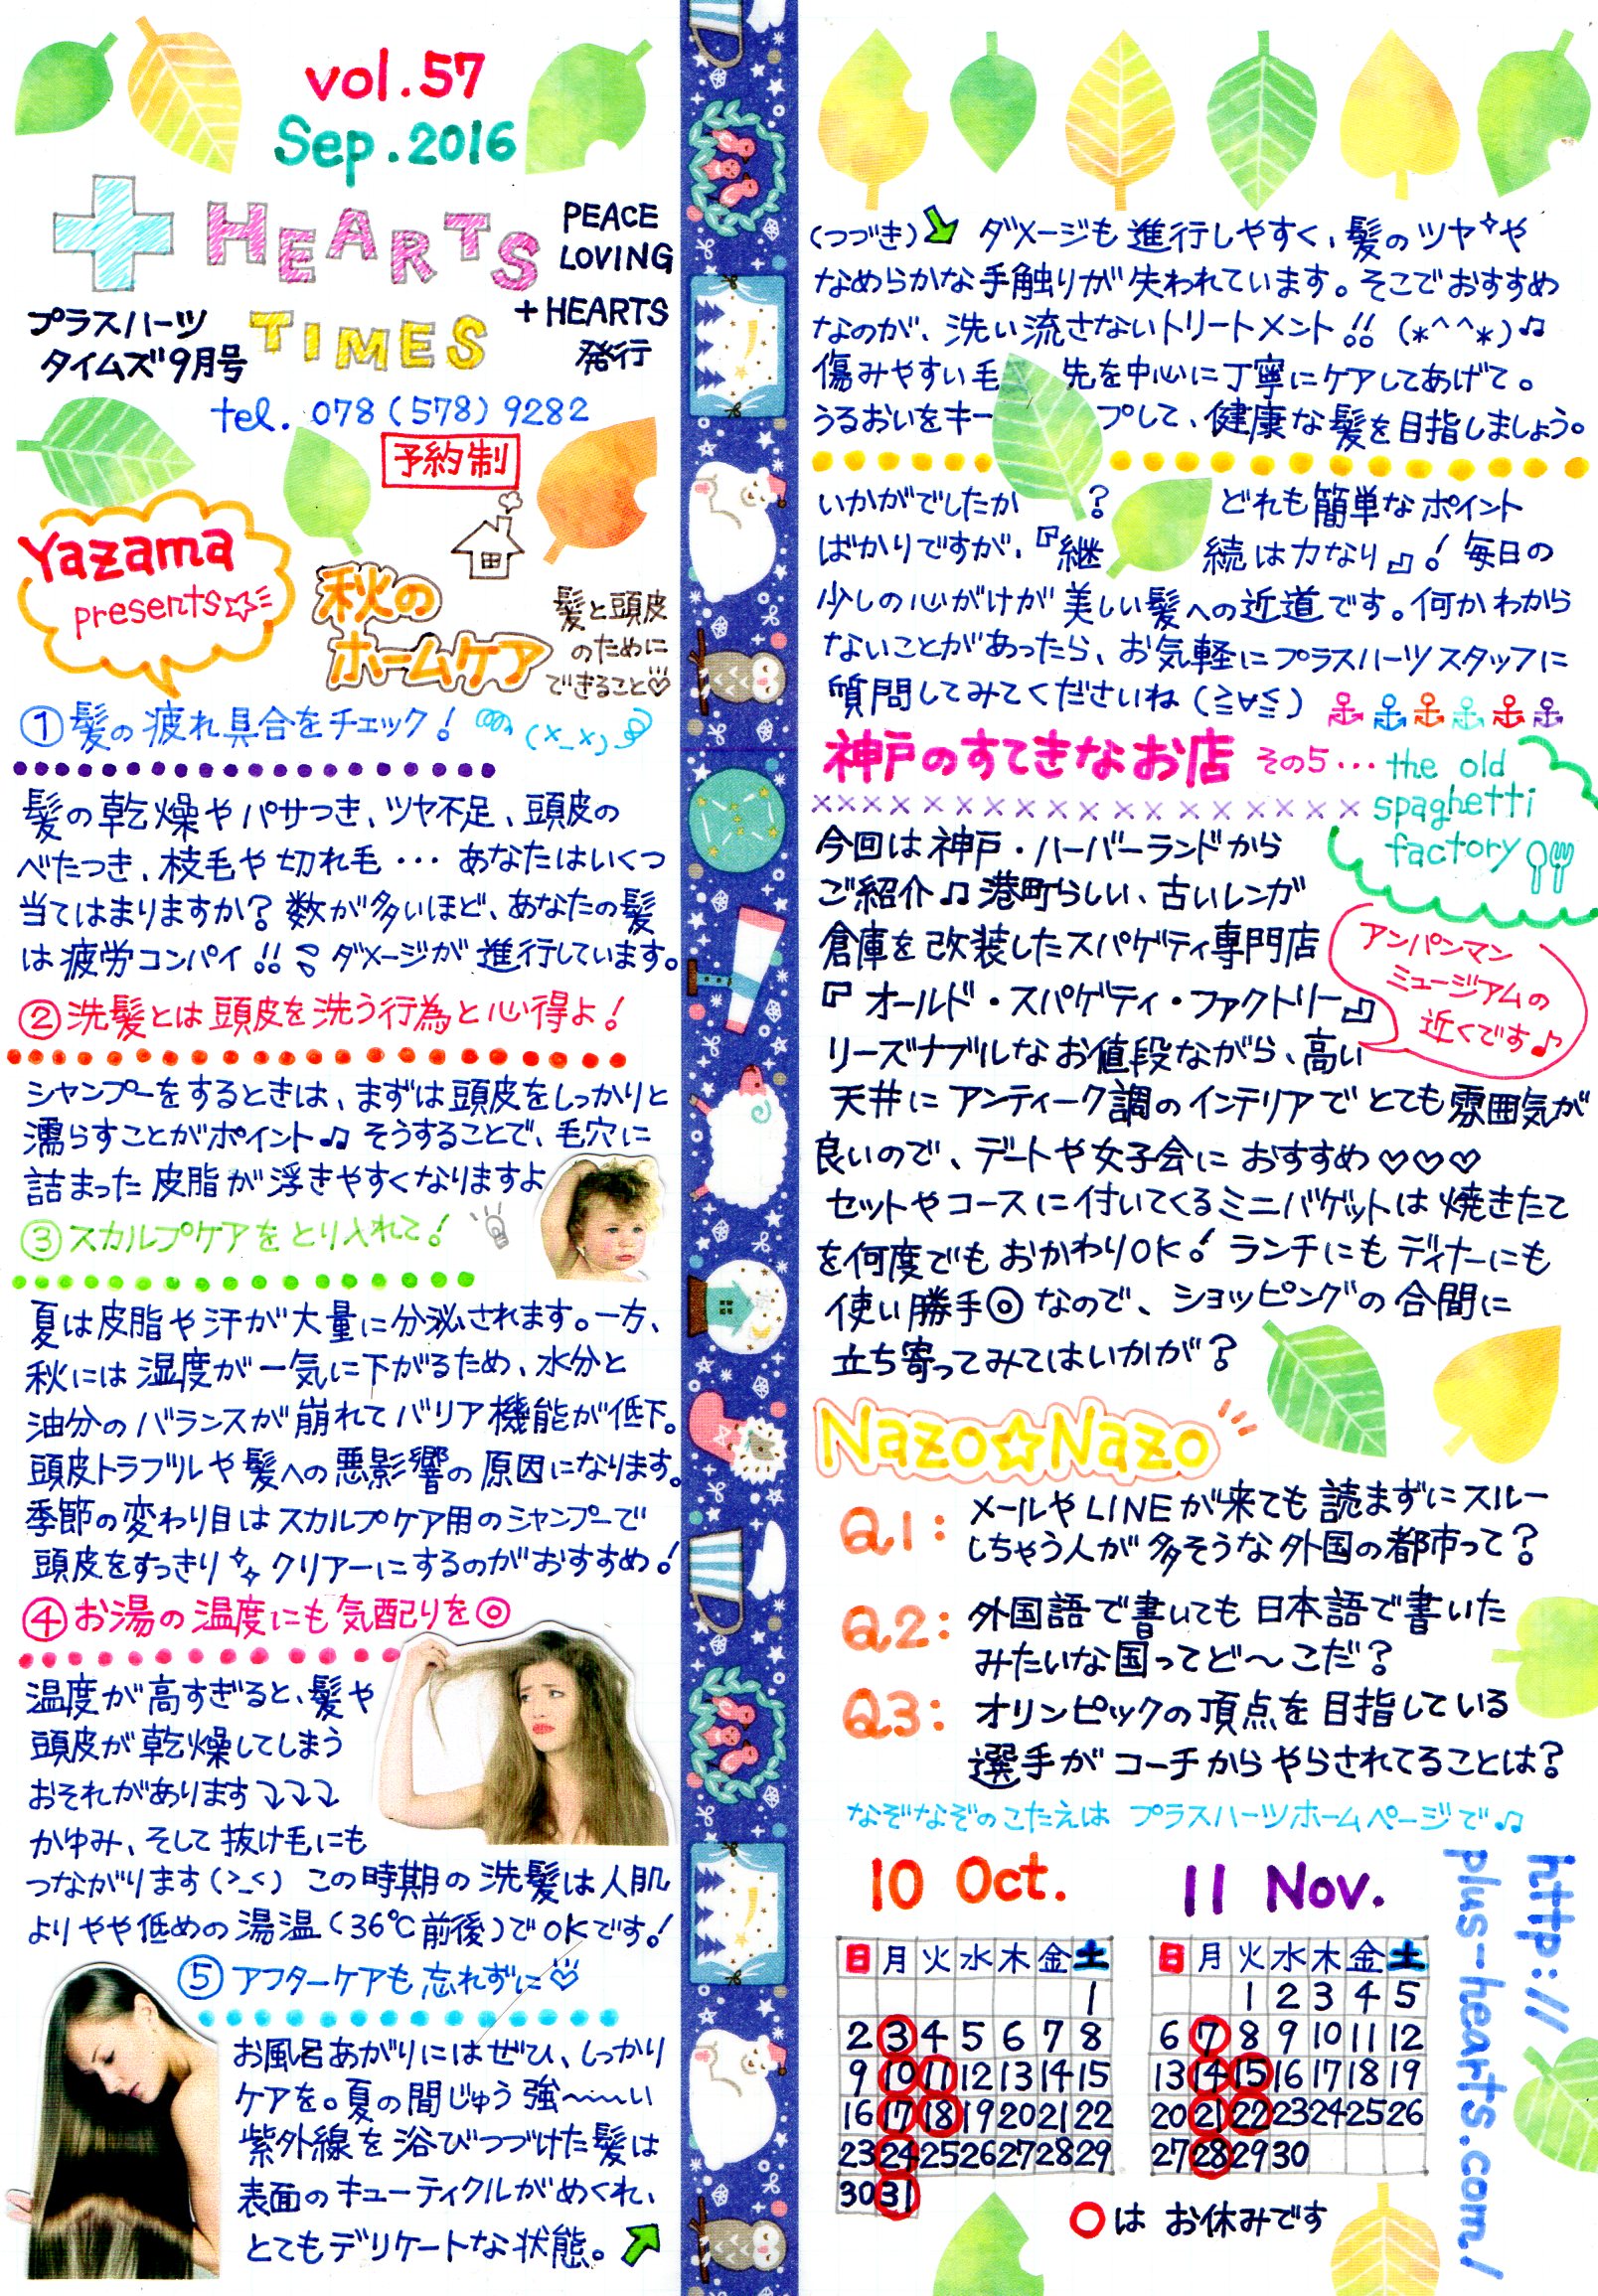 vol.57
Sep.2016
+HEARTS
TIMES
PEACE
LOVING
+HEARTS
発行
プラスハーツ
タイムズ9月号
tel. 078(578)9282
予約制
Yazama
presents☆
秋の
ホームケア
髪と頭皮
のために
できること♡
①髪の疲れ具合をチェック! (x_x)
髪の乾燥やパサつき、ツヤ不足、頭皮の
べたつき、枝毛や切れ毛… あなたはいくつ
当てはまりますか?数が多いほど、あなたの髪
は疲労コンパイ!!ダメージが進行しています。
②洗髪とは頭皮を洗う行為と心得よ!
シャンプーをするときは、まずは頭皮をしっかりと
濡らすことがポイント♫そうすることで、毛穴に
詰まった皮脂が浮きやすくなりますよ
③スカルプケアをとり入れて!
夏は皮脂や汗が大量に分泌されます。一方、
秋には湿度が一気に下がるため、水分と
油分のバランスが崩れてバリア機能が低下。
頭皮トラブルや髪への悪影響の原因になります。
季節の変わり目はスカルプケア用のシャンプーで
頭皮をすっきり✧クリアーにするのがおすすめ!
④お湯の温度にも気配りを◎
温度が高すぎると、髪や
頭皮が乾燥してしまう
おそれがあります⤵⤵⤵
かゆみ、そして抜け毛にも
つながります(>_<) この時期の洗髪は人肌
よりやや低めの湯温(36℃前後)でOKです!
⑤アフターケアも忘れずに♡
お風呂あがりにはぜひ、しっかり
ケアを。夏の間じゅう強〜〜い
紫外線を浴びつづけた髪は
表面のキューティクルがめくれ、
とてもデリケートな状態。
(つづき) ダメージも進行しやすく、髪のツヤ✧や
なめらかな手触りが失われています。そこでおすすめ
なのが、洗い流さないトリートメント!!(*^^*)♫
傷みやすい毛先を中心に丁寧にケアしてあげて。
うるおいをキープして、健康な髪を目指しましょう。
いかがでしたか?どれも簡単なポイント
ばかりですが、『継続は力なり』!毎日の
少しの心がけが美しい髪への近道です。何かわから
ないことがあったら、お気軽にプラスハーツスタッフに
質問してみてくださいね(≧∀≦)
神戸のすてきなお店 その5…
the old
spaghetti
factory
今回は神戸・ハーバーランドから
ご紹介♫港町らしい、古いレンガ
倉庫を改装したスパゲティ専門店
『オールド・スパゲティ・ファクトリー』
アンパンマン
ミュージアムの
近くです♪
リーズナブルなお値段ながら、高い
天井にアンティーク調のインテリアでとても雰囲気が
良いので、デートや女子会におすすめ♡♡♡
セットやコースに付いてくるミニバゲットは焼きたて
を何度でもおかわりOK!ランチにもディナーにも
使い勝手◎なので、ショッピングの合間に
立ち寄ってみてはいかが?
Nazo☆Nazo
Q1: メールやLINEが来ても読まずにスルー
しちゃう人が多そうな外国の都市って?
Q2: 外国語で書いても日本語で書いた
みたいな国ってど〜こだ?
Q3: オリンピックの頂点を目指している
選手がコーチからやらされてることは?
なぞなぞのこたえは プラスハーツホームページで♫
10 Oct.
日月火水木金土
1
2 3 4 5 6 7 8
9 10 11 12 13 14 15
16 17 18 19 20 21 22
23 24 25 26 27 28 29
30 31
11 Nov.
日月火水木金土
1 2 3 4 5
6 7 8 9 10 11 12
13 14 15 16 17 18 19
20 21 22 23 24 25 26
27 28 29 30
○はお休みです
http://
plus-hearts.com/